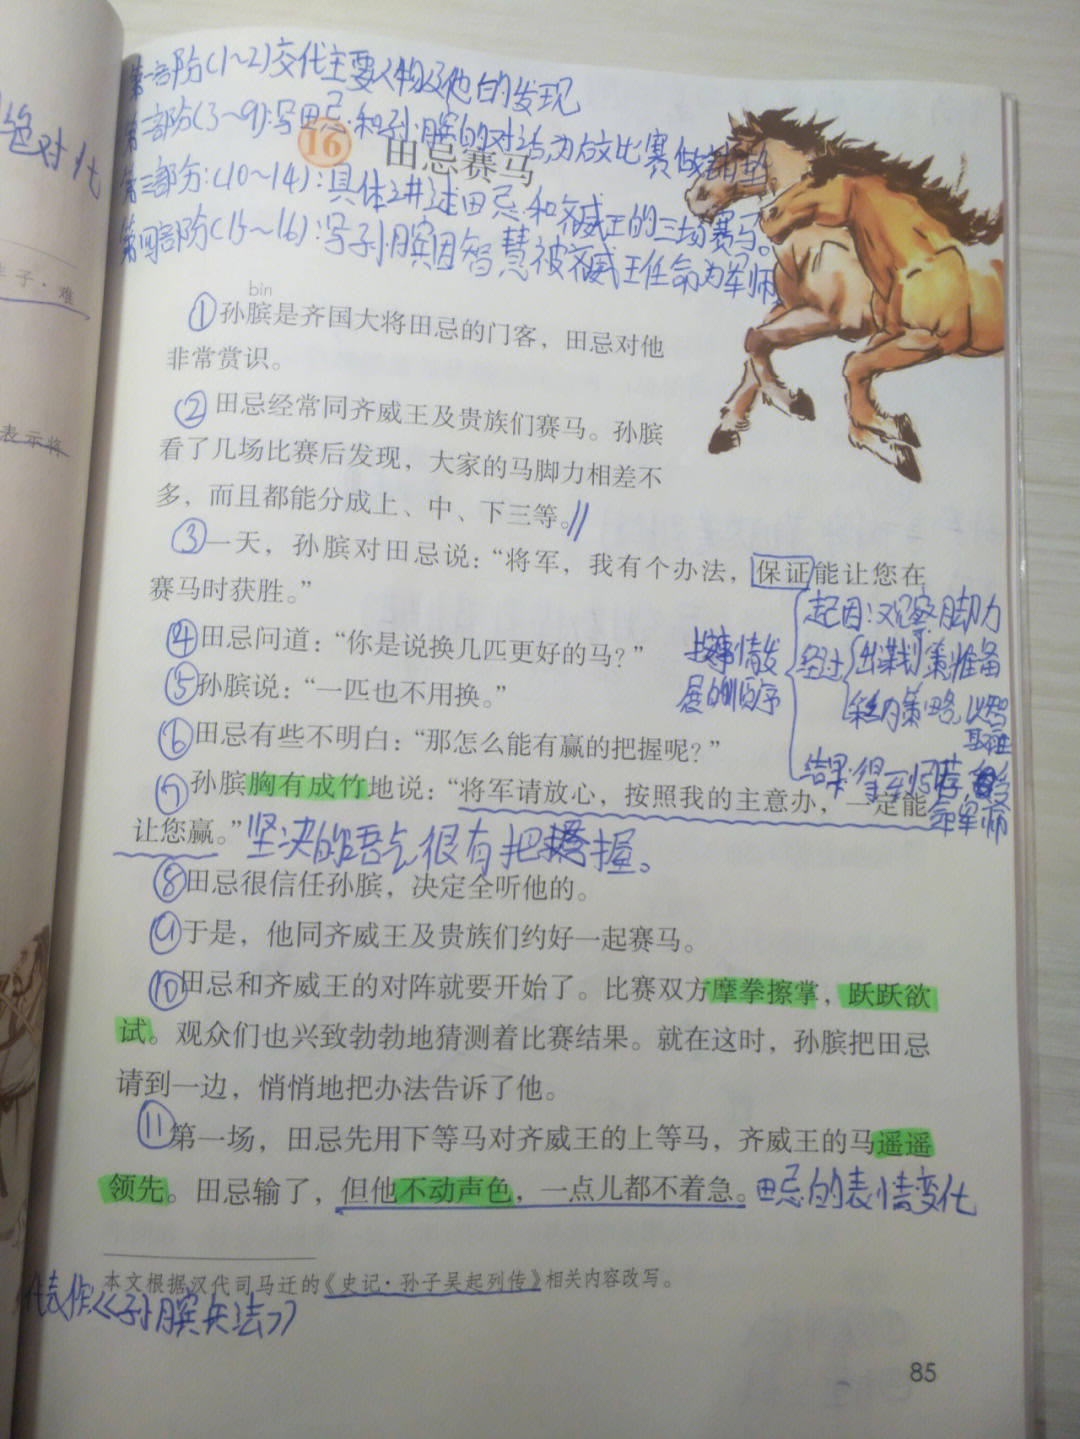 第一部分(1~2)交代主要人物及他的发现
第二部分(3~9):写田忌和孙膑的对话,为后文比赛做铺垫。
16 田忌赛马
第三部分:(10~14):具体讲述田忌和齐威王的三场赛马。
第四部阶(15~16):写孙膑因智慧被齐威王任命为军师
绝对
丰子·难
表示将
bìn
①孙膑是齐国大将田忌的门客，田忌对他
非常赏识。
②田忌经常同齐威王及贵族们赛马。孙膑
看了几场比赛后发现，大家的马脚力相差不
多，而且都能分成上、中、下三等。//
③一天，孙膑对田忌说：“将军，我有个办法，保证能让您在
赛马时获胜。”
起因:观察脚力
④田忌问道：“你是说换几匹更好的马？”
按事情发
展的顺序
经过
出谋划策准备
⑤孙膑说：“一匹也不用换。”
采纳策略 以智
取胜
⑥田忌有些不明白：“那怎么能有赢的把握呢？”
结果:得到推荐
命军师
⑦孙膑胸有成竹地说：“将军请放心，按照我的主意办，一定能
让您赢。”坚决的语气很有把握。
⑧田忌很信任孙膑，决定全听他的。
⑨于是，他同齐威王及贵族们约好一起赛马。
⑩田忌和齐威王的对阵就要开始了。比赛双方摩拳擦掌，跃跃欲
试。观众们也兴致勃勃地猜测着比赛结果。就在这时，孙膑把田忌
请到一边，悄悄地把办法告诉了他。
⑪第一场，田忌先用下等马对齐威王的上等马，齐威王的马遥遥
领先。田忌输了，但他不动声色，一点儿都不着急。田忌的表情变化
本文根据汉代司马迁的《史记·孙子吴起列传》相关内容改写。
代表作《孙膑兵法》
85